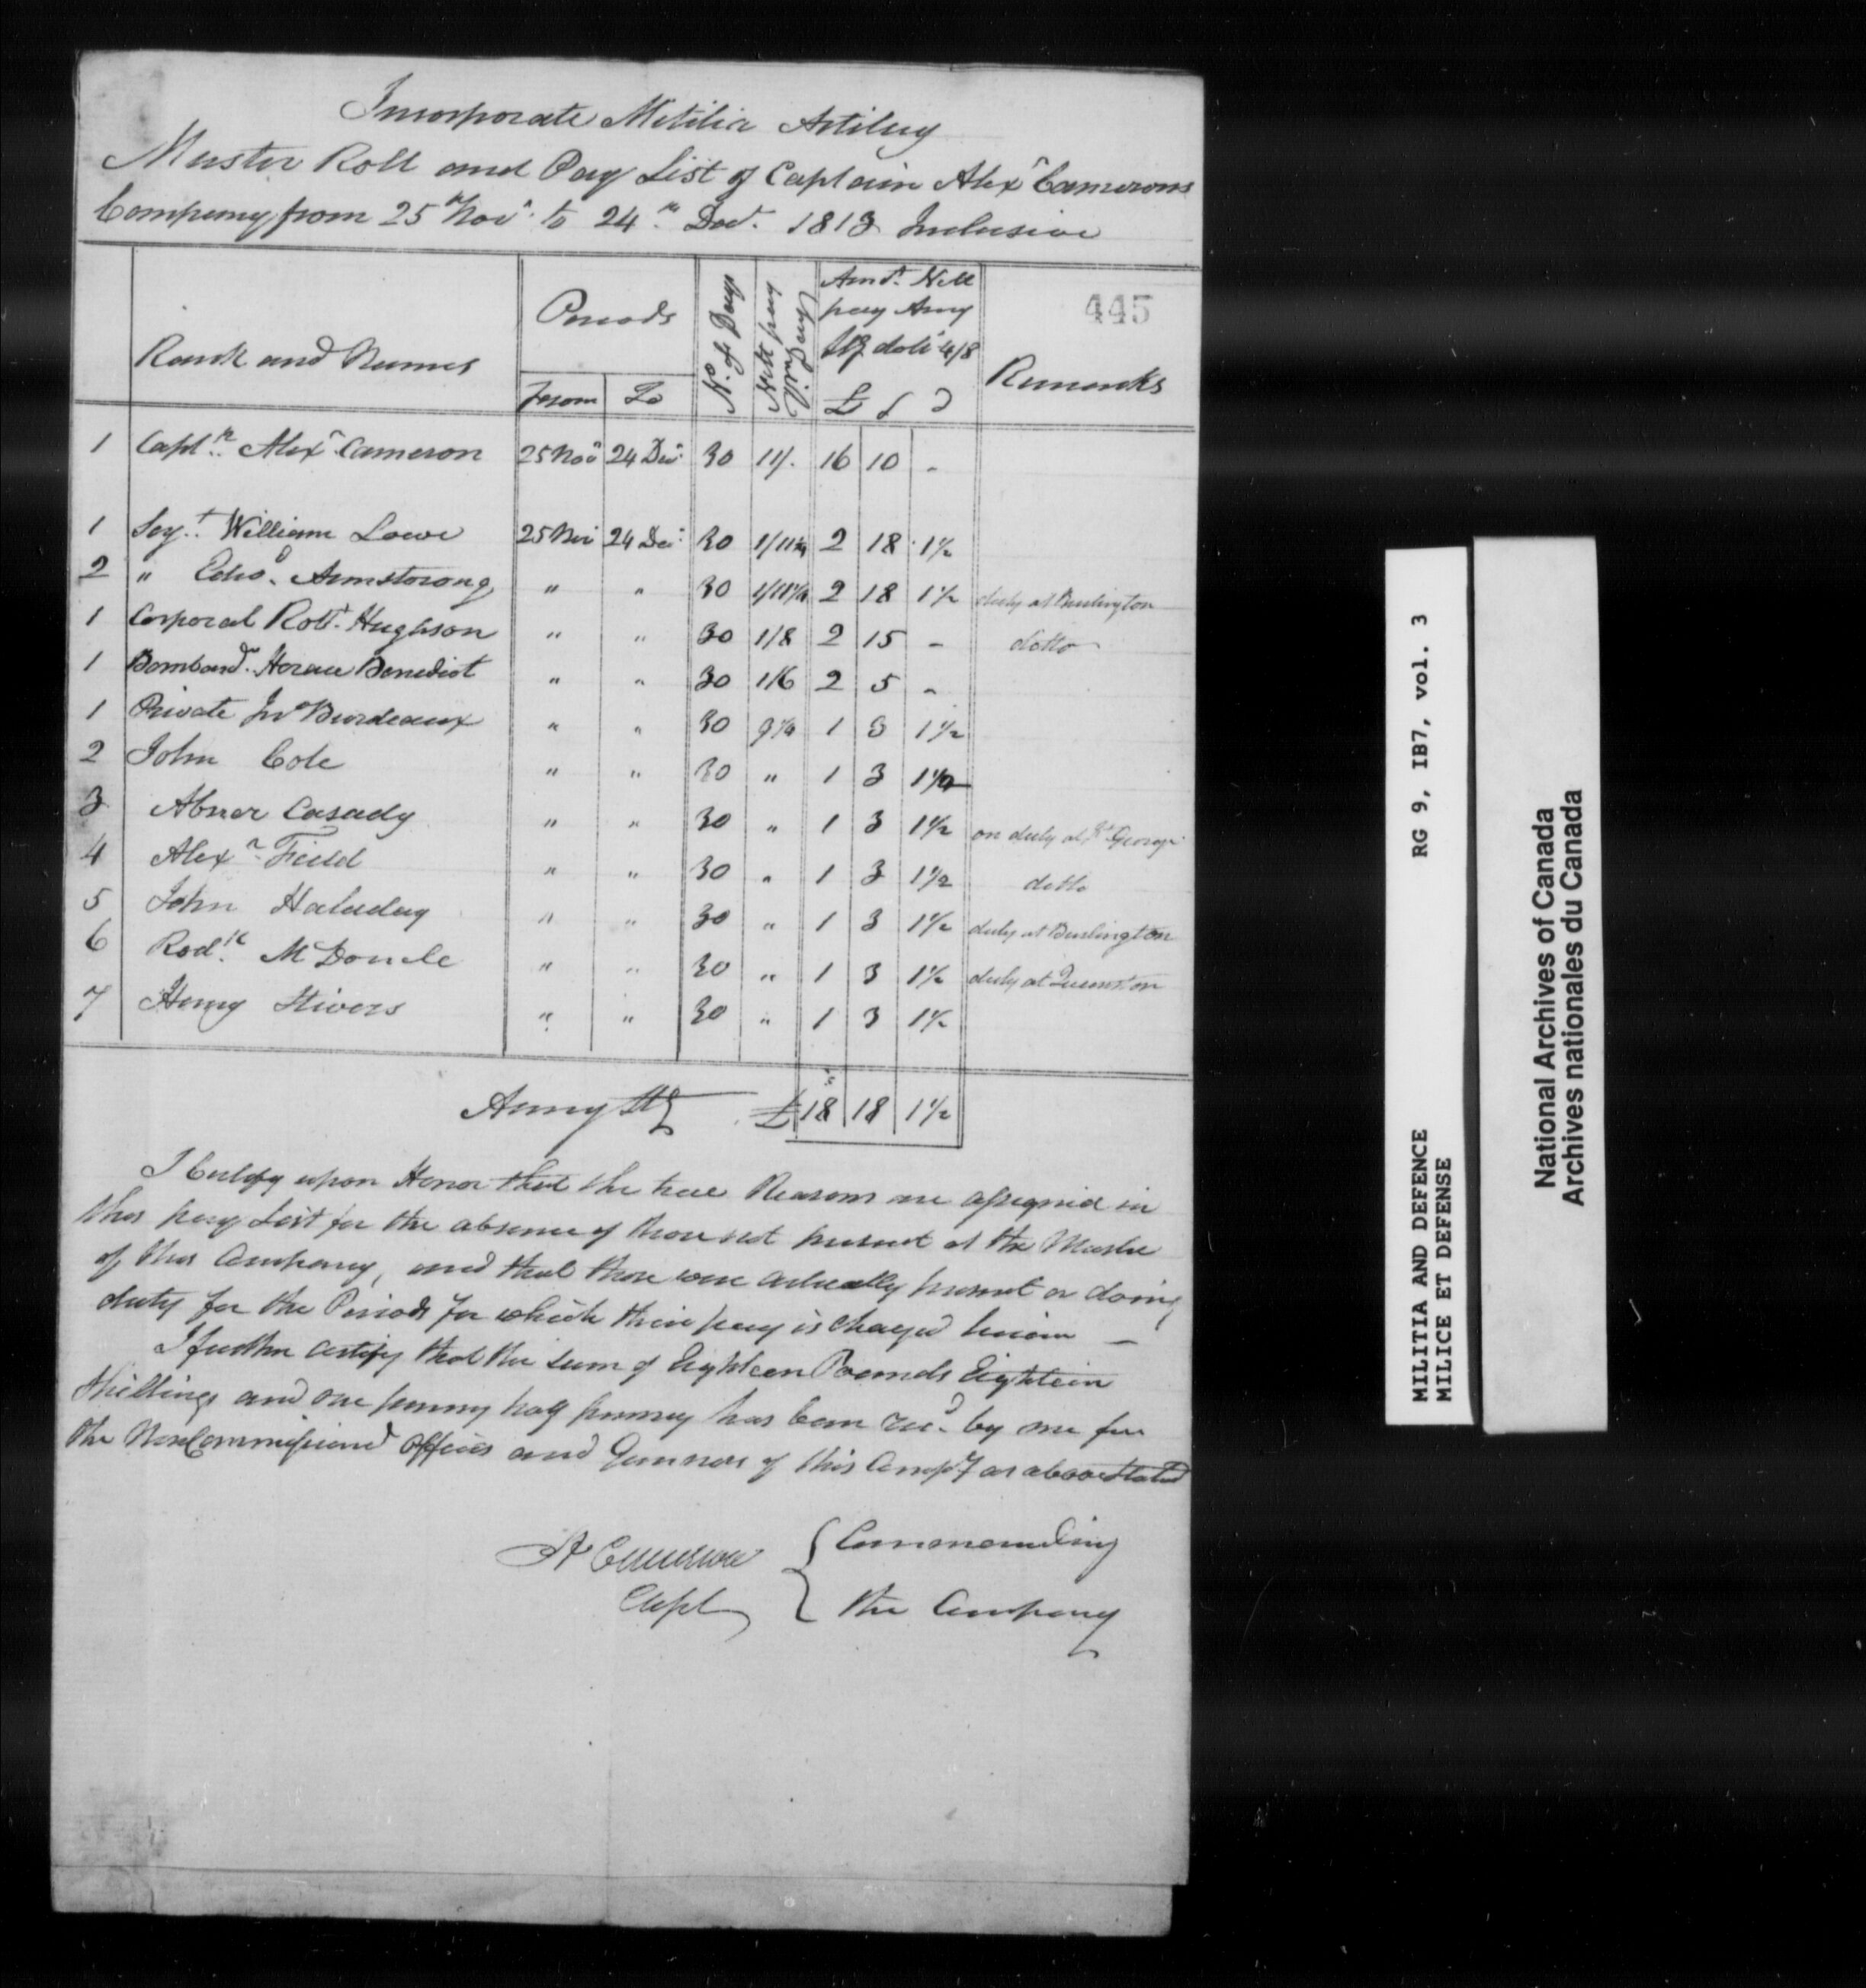 Incorporate Militia Artilery
Muster Roll and Pay List of Captain Alexr Camerons
Company from 25th Novr to 24th Decr 1813 Inclusive
445
Rank and Names | Periods | No. of Days | Nett pay Diem | Amt. Nett pay Army Stg dolr 4/8 | Remarks
From | To | £ s d
1 Captn Alexr Cameron 25 Novr 24 Decr 30 11/. 16 10 -
1 Sergt William Lowe 25 Novr 24 Decr 30 1/11¼ 2 18 1½
2 " Edwd Armstrong " " 30 1/11¼ 2 18 1½ duty at Burlington
1 Corporal Robt Hughson " " 30 1/8 2 15 - ditto
1 Bombardr Horace Benedict " " 30 1/6 2 5 -
1 Private Jno Burdeaux " " 30 9¼ 1 3 1½
2 John Cole " " 30 " 1 3 1½
3 Abner Casady " " 30 " 1 3 1½ on duty at Ft George
4 Alexr Field " " 30 " 1 3 1½ ditto
5 John Haladay " " 30 " 1 3 1½ duty at Burlington
6 Rodk McDonele " " 30 " 1 3 1½ duty at Queenston
7 Henry Stivers " " 30 " 1 3 1½
Army Stg £ 18 18 1½
I Certify upon Honor that the true Reasons are assigned in
this pay List for the absence of those not present at the Muster
of this Company, and that those were actually present or doing
duty for the Periods for which their pay is Charged herein —
I further Certify that the sum of Eighteen Pounds Eighteen
Shillings and one penny half penney has been recd by me for
the NonCommissioned Officers and Gunners of this Compy as above Stated
A Cameron { Commanding
Capt { the Company
MILITIA AND DEFENCE RG 9, IB7, vol. 3
MILICE ET DEFENSE
National Archives of Canada
Archives nationales du Canada